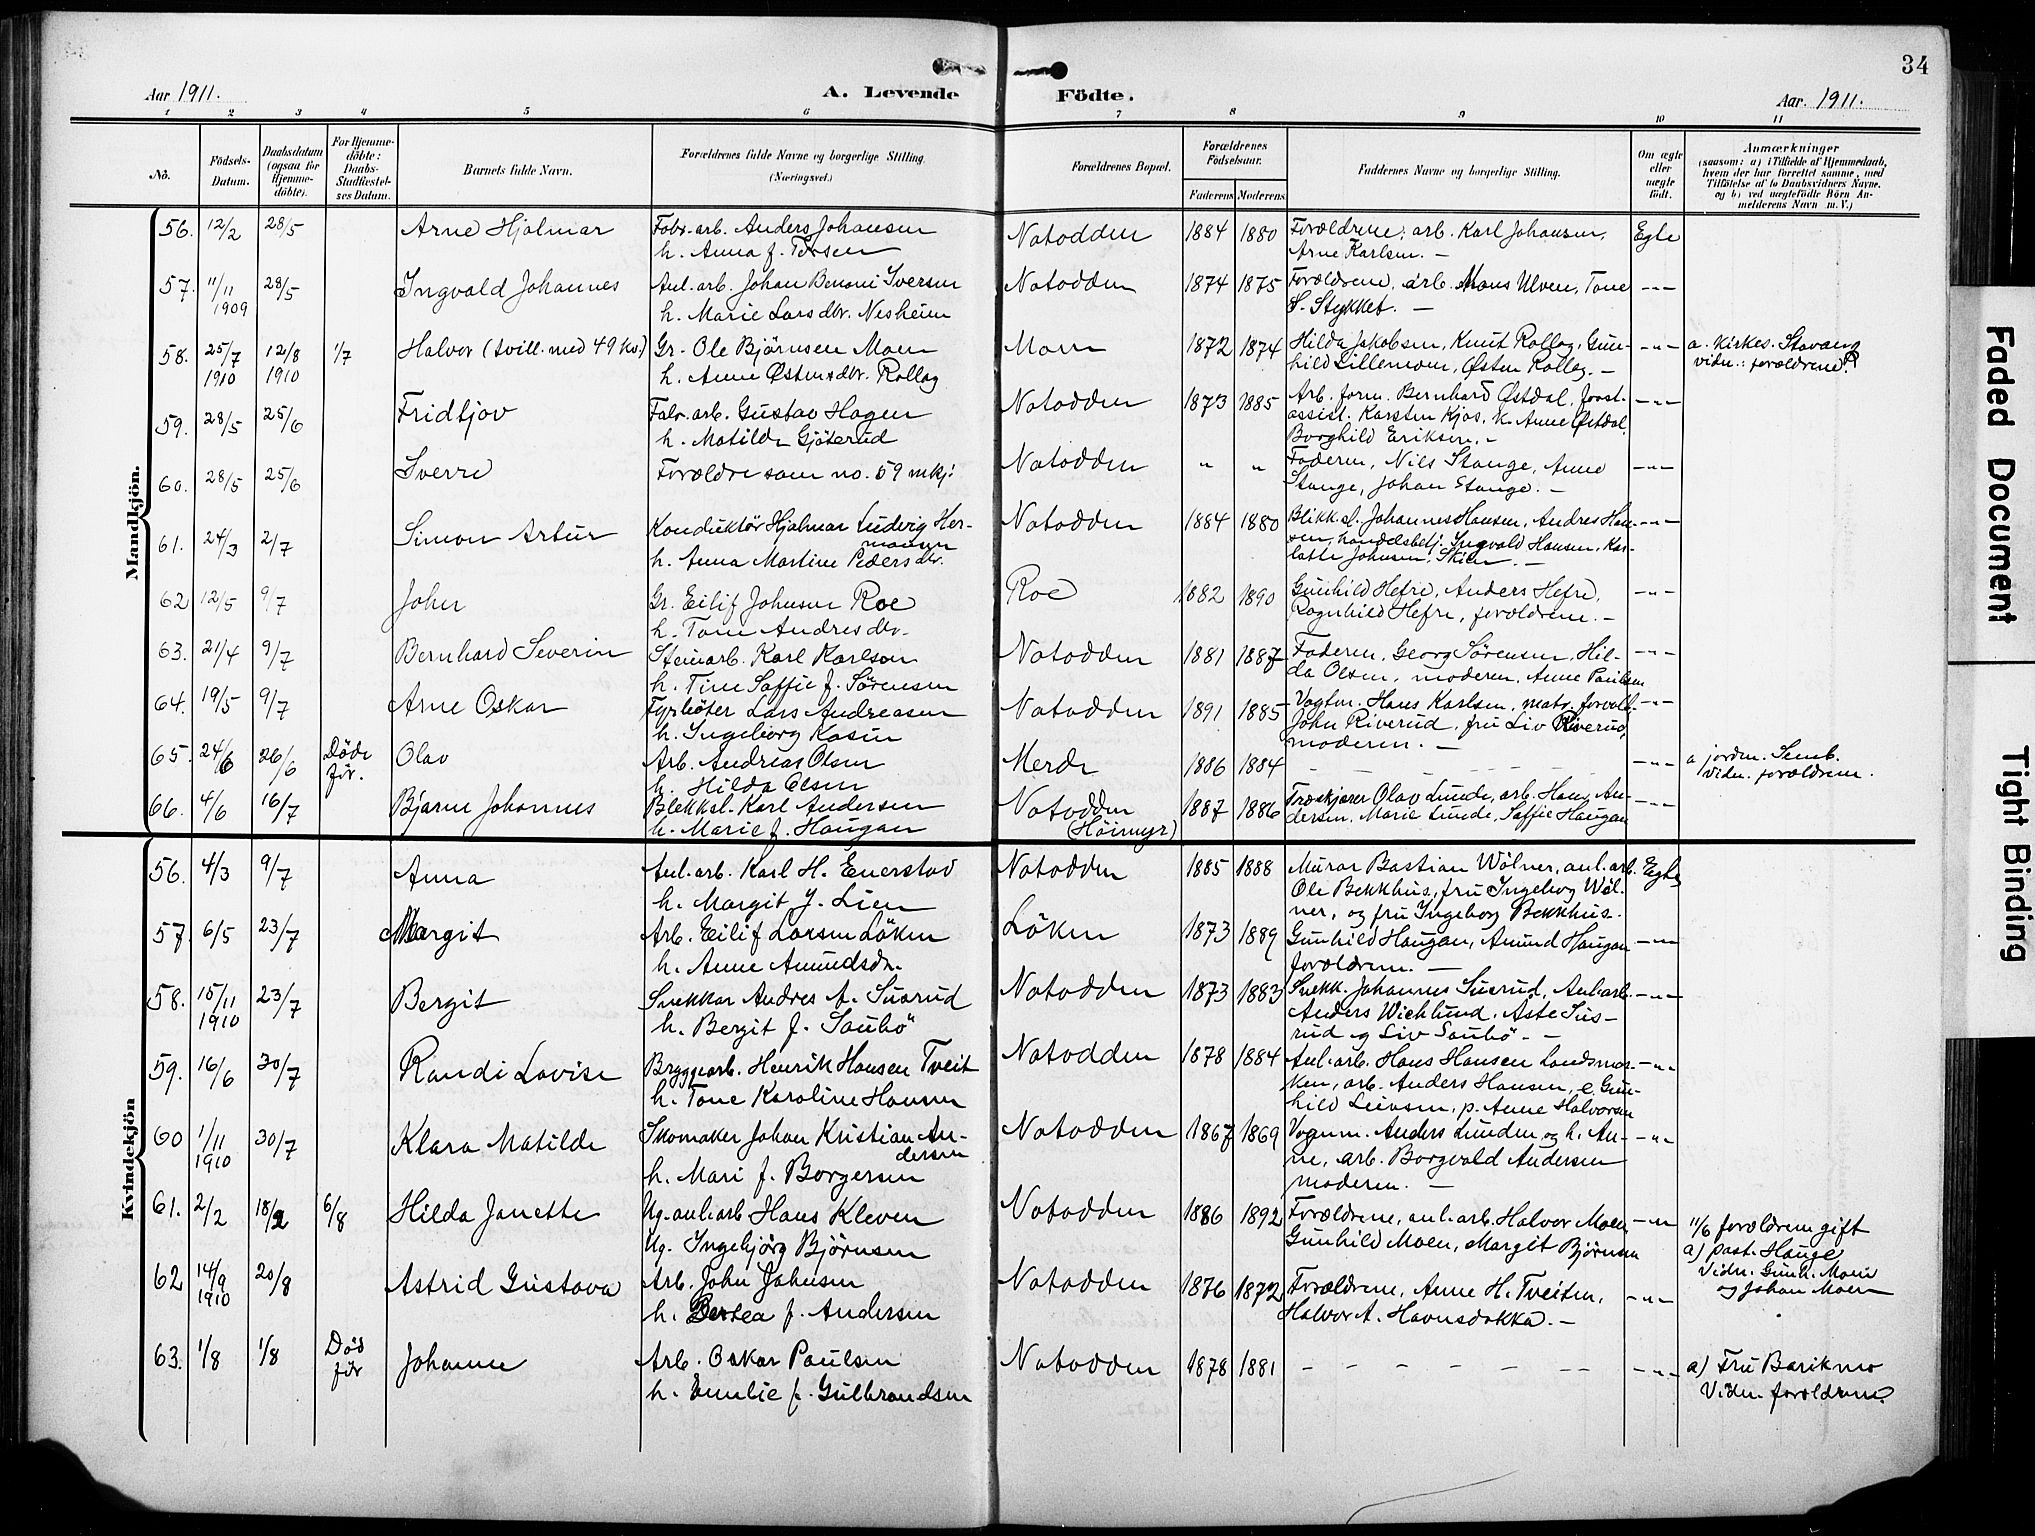 34
Aar 1911.
A. Levende Födte.
Aar. 1911.
1 2 3 4 5 6 7 8 9 10 11
No.
Födsels-Datum.
Daabsdatum (ogsaa for Hjemme-döbte).
For Hjemme-döbte: Daabs-Stadfæstel-ses Datum.
Barnets fulde Navn.
Forældrenes fulde Navne og borgerlige Stilling. (Næringsvei.)
Forældrenes Bopæl.
Forældrenes Födselsaar.
Faderens Moderens
Faddernes Navne og borgerlige Stilling.
Om ægte eller uægte födt.
Anmærkninger
(saasom: a) i Tilfælde af Hjemmedaab,
hvem der har forrettet samme, med
Tilföielse af to Daabsvidners Navne,
og b) ved uægtefödte Börn An-
melderens Navn m. V.)
Mandkjön.
56. 12/2 28/5 Arne Hjalmar Fabr. arb. Anders Johansen Notodden 1884 1880 Forældrene, arb. Karl Johansen, Egte
h. Anna f. Torsen Arne Karlsen. —
57. 11/11 1909 28/5 Ingvald Johannes Anl. arb. Johan Benoni Iversen Notodden 1874 1875 Forældrene, arb. Mons Ulven, Tone -"-
h. Marie Larsdtr. Nesheim S. Stykket. —
58. 25/7 1910 12/8 1910 1/7 Halvor (tvill. med 49 kv.) Gr. Ole Bjørnsen Moen Moen 1872 1874 Hilda Jakobsen, Knut Rollag, Gun- -"- a. Kirkes. Stavang
h. Anne Østensdtr. Rollag hild Lillemoen, Østen Rollag. — vidn.: forældrene.
59. 28/5 25/6 Fridtjov Fabr. arb. Gustav Hagen Notodden 1873 1885 Arb. form. Bernhard Østdal, post- -"-
h. Matilde Gjöterud assist. Karsten Kjos, h. Anne Østdal,
Borghild Eriksen. -
60. 28/5 25/6 Sverre Forældre som no. 59 mkj: Notodden " " Faderen, Nils Stange, Anne -"-
Stange, Johan Stange. —
61. 24/3 2/7 Simon Artur Konduktör Hjalmar Ludvig Her- Notodden 1884 1880 Blikksl. Johannes Hansen, Andres Han- -"-
mansen sen, handelsbetj. Ingvald Hansen, Kar-
h. Anna Martine Pedersdtr. lotte Johnsen, Skien. —
62 12/5 9/7 John Gr. Eilif Johnsen Roe Roe 1882 1890 Gunhild Hefre, Anders Hefre, -"-
h. Tone Andresdtr. Ragnhild Hefre, forældrene. —
63. 21/4 9/7 Bernhard Severin Stenarb. Karl Karlson Notodden 1881 1887 Faderen, Georg Sörensen, Hil- -"-
h. Tine Soffie f. Sörensen da Olsen, moderen, Anne Paulsen
64. 19/5 9/7 Arne Oskar Fyrböter Lars Andreasen Notodden 1891 1885 Vogtm. Hans Karlsen, matr. forvalt. -"-
h. Ingeborg Kasin John Riverud, fru Liv Riverud,
moderen. —
65. 24/6 26/6 Döde för. Olav Arb. Andreas Olsen Merde 1886 1884 - - - - - -"- a jordm. Semb.
h. Hilda Olsen Vidn. forældrene.
66. 4/6 16/7 Bjarne Johannes Blekksl. Karl Andersen Notodden 1887 1886 Træskjærer Olav Lunde, arb. Hans An- -"-
h. Marie f. Haugan (Höimyr) dersen, Marie Lunde, Soffie Haugan
Kvindekjön
56. 4/3 9/7 Anna Anl. arb. Karl H. Enerstad Notodden 1885 1888 Murar Bastian Wölner, anl. arb. Egte
h. Margit J. Lien Ole Bekkhus, fru Ingeborg Wöl-
ner, og fru Ingeborg Bekkhus.
57. 6/5 23/7 Margit Arb. Eilif Larsen Löken Löken 1873 1889 Gunhild Haugan, Amund Haugan -"-
h. Anne Amundsdr. forældrene. —
58. 15/11 1910 23/7 Bergit Snekkar Andres A. Susrud Notodden 1873 1883 Snekk. Johannes Susrud, Anl. arb. -"-
h. Bergit f. Saubö Anders Wichlund, Aste Sus-
rud og Liv Saubö. -
59. 16/6 30/7 Randi Lovise Bryggearb. Henrik Hansen Tveit Notodden 1878 1884 Anl. arb. Hans Hansen Landsmar- -"-
h. Tone Karoline Hansen ken, arb. Anders Hansen, e. Gun-
hild Leivsen, p. Anne Halvorsen
60 1/11 1910 30/7 Klara Matilde Skomaker Johan Kristian An- Notodden 1867 1869 Vognm. Anders Lunden og h. An- -"-
dersen ne, arb. Borgvald Andersen
h. Mari f. Borgersen moderen. —
61. 2/2 18/2 6/8 Hilda Janette Ug. anl. arb Hans Kleven Notodden 1886 1892 Forældrene, anl. arb. Halvor Moen, -"- 11/6 forældrene gift
Ug. Ingebjörg Björnsen Gunhild Moen, Margit Björnsen a) past. Hauge
Vidn. Gunh. Moen
og Johan Moen
62 14/9 1910 20/8 Astrid Gustava Arb. John Johnsen Notodden 1876 1872 Forældrene, Anne H. Tveiten, -"-
h. Bertea f. Andersen Halvor A. Havnsdokka. —
63. 1/8 1/8 Död för Johanne Arb. Oskar Paulsen Notodden 1878 1881 - - - - - - -"- a) Fru Barikmo
h. Emilie f. Gulbrandsen Vidn. forældrene.
Faded Document
Tight Binding